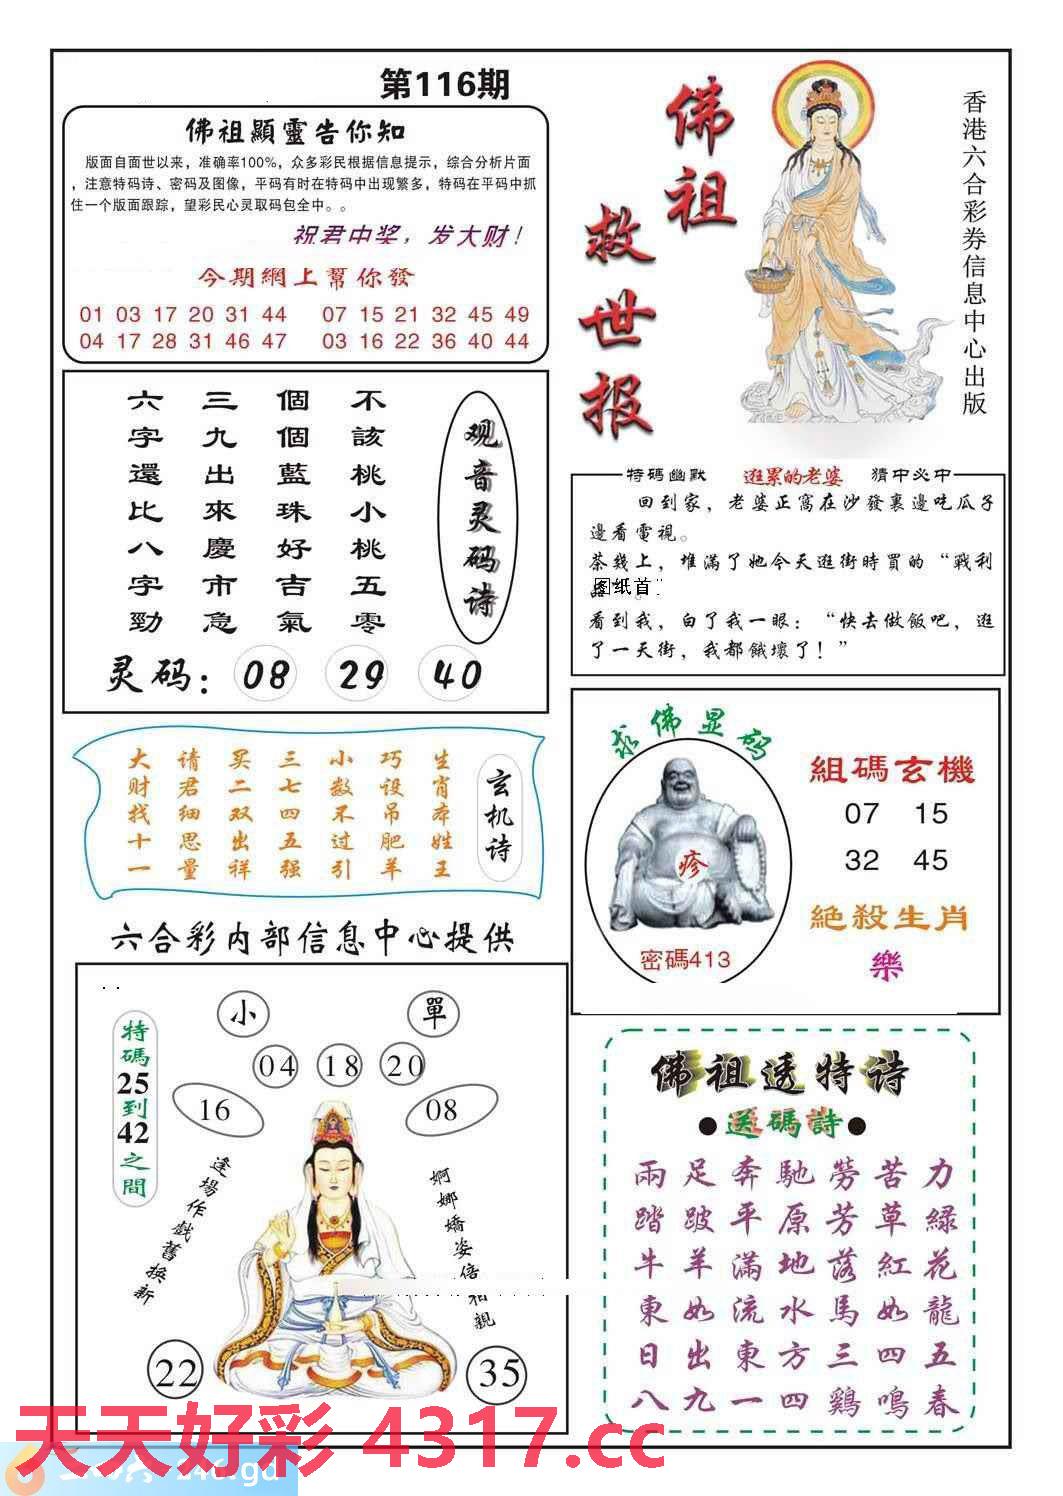 第116期
佛祖顯靈告你知
版面自面世以来，准确率100%，众多彩民根据信息提示，综合分析片面
，注意特码诗、密码及图像，平码有时在特码中出现繁多，特码在平码中抓
住一个版面跟踪，望彩民心灵取码包全中。。
祝君中奖，发大财！
今期網上幫你發
01 03 17 20 31 44 07 15 21 32 45 49
04 17 28 31 46 47 03 16 22 36 40 44
佛祖
救世报
香港六合彩券信息中心出版
观音灵码诗
不該桃小桃五零
個個藍珠好吉氣
三九出來慶市急
六字還比八字勁
灵码：08 29 40
特碼幽默 逛累的老婆 猜中必中
回到家，老婆正窩在沙發裏邊吃瓜子
邊看電視。
茶幾上，堆滿了她今天逛街時買的“戰利
图纸首
看到我，白了我一眼：“快去做飯吧，逛
了一天街，我都餓壞了！”
玄机诗
生肖本姓王
巧设吊肥羊
小数不过引
三七四五强
买二双出祥
请君细思量
大财找十一
求佛显码
疹
密碼413
組碼玄機
07 15
32 45
絕殺生肖
樂
六合彩内部信息中心提供
特碼25到42之間
小 單
04 18 20
16 08
逢場作戲舊换新
婀娜嬌姿倍相親
22 35
佛祖透特诗
●送碼詩●
兩足奔馳勞苦力
踏跛平原芳草緑
牛羊滿地落紅花
東如流水馬如龍
日出東方三四五
八九一四鷄鳴春
天天好彩 4317.cc
246.gd